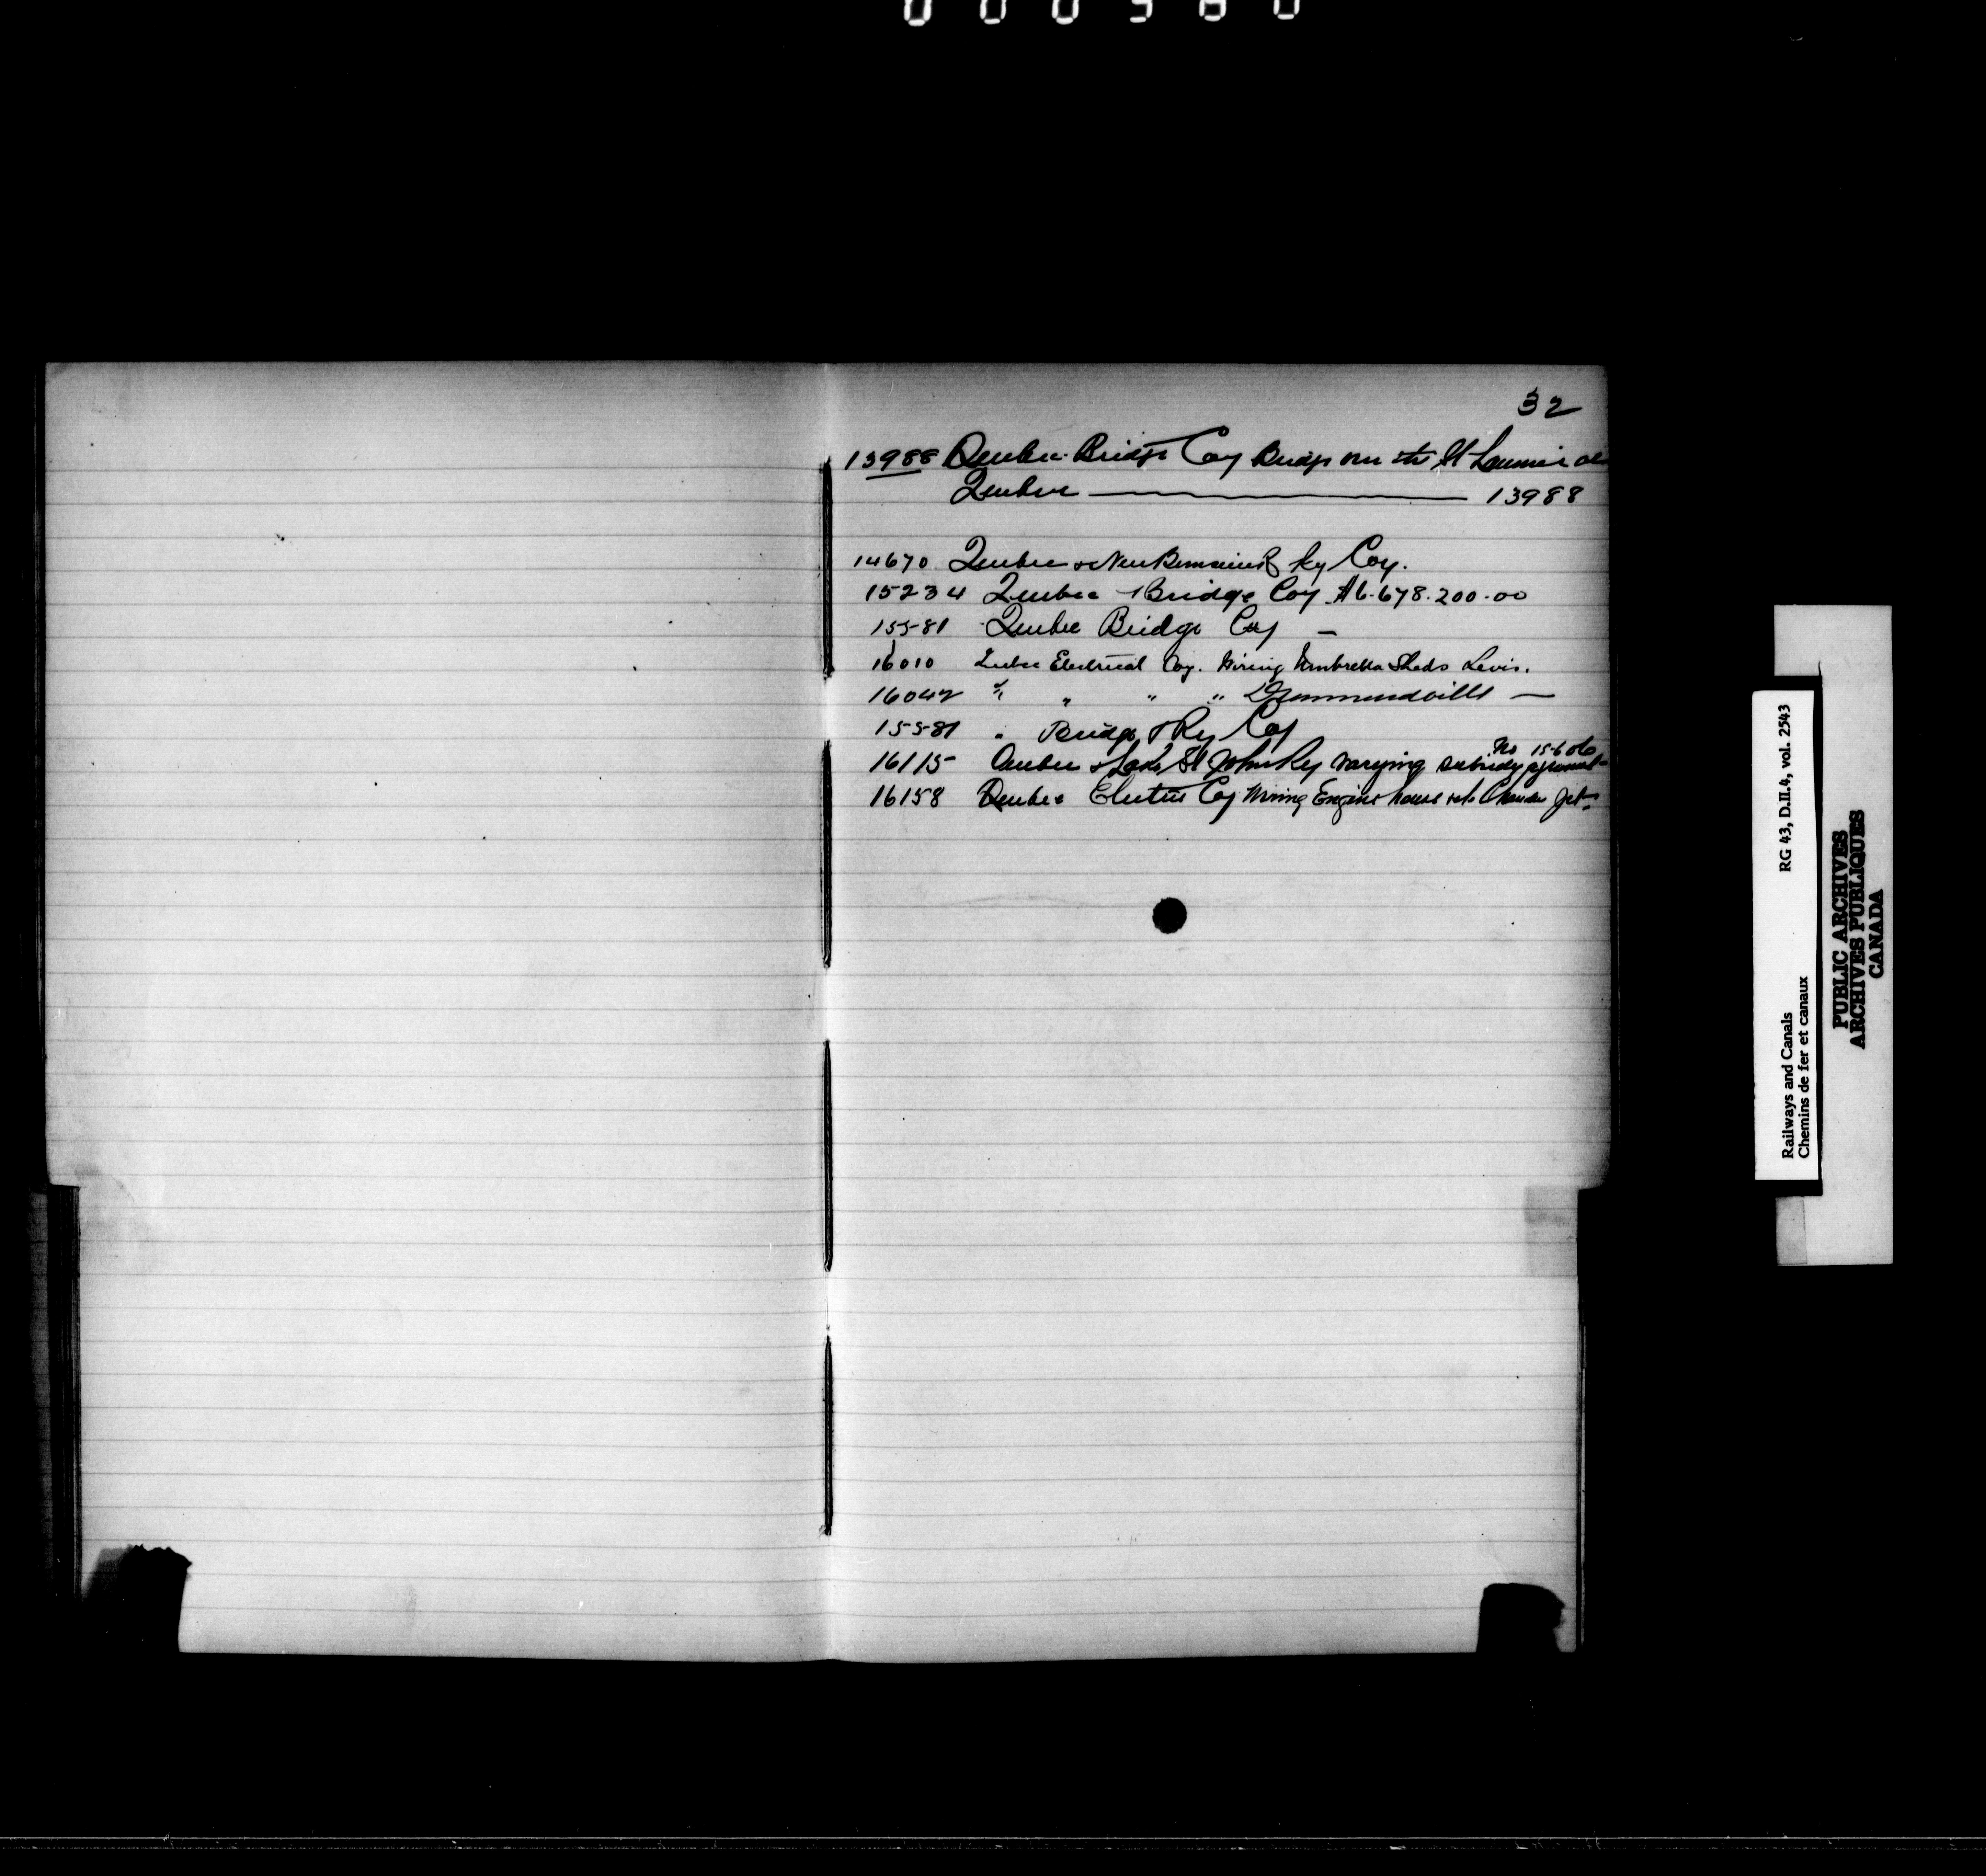 32
13988 Quebec Bridge Coy Bridge over the St Lawrence at
Quebec 13988
14670 Quebec & New Brunswick Ry Coy.
15234 Quebec Bridge Coy $6.678.200.00
15581 Quebec Bridge Coy —
16010 Quebec Electrical Coy. Wiring Umbrella Sheds Levis.
16042 " " " " Drummondville —
15581 " Bridge & Ry Coy
No 15606
16115 Quebec & Lake St John Ry Varying subsidy agreement
16158 Quebec Electric Coy Wiring Engine house Chaudiere Jct.
Railways and Canals RG 43, D.II.4, vol. 2543
Chemins de fer et canaux
PUBLIC ARCHIVES
ARCHIVES PUBLIQUES
CANADA